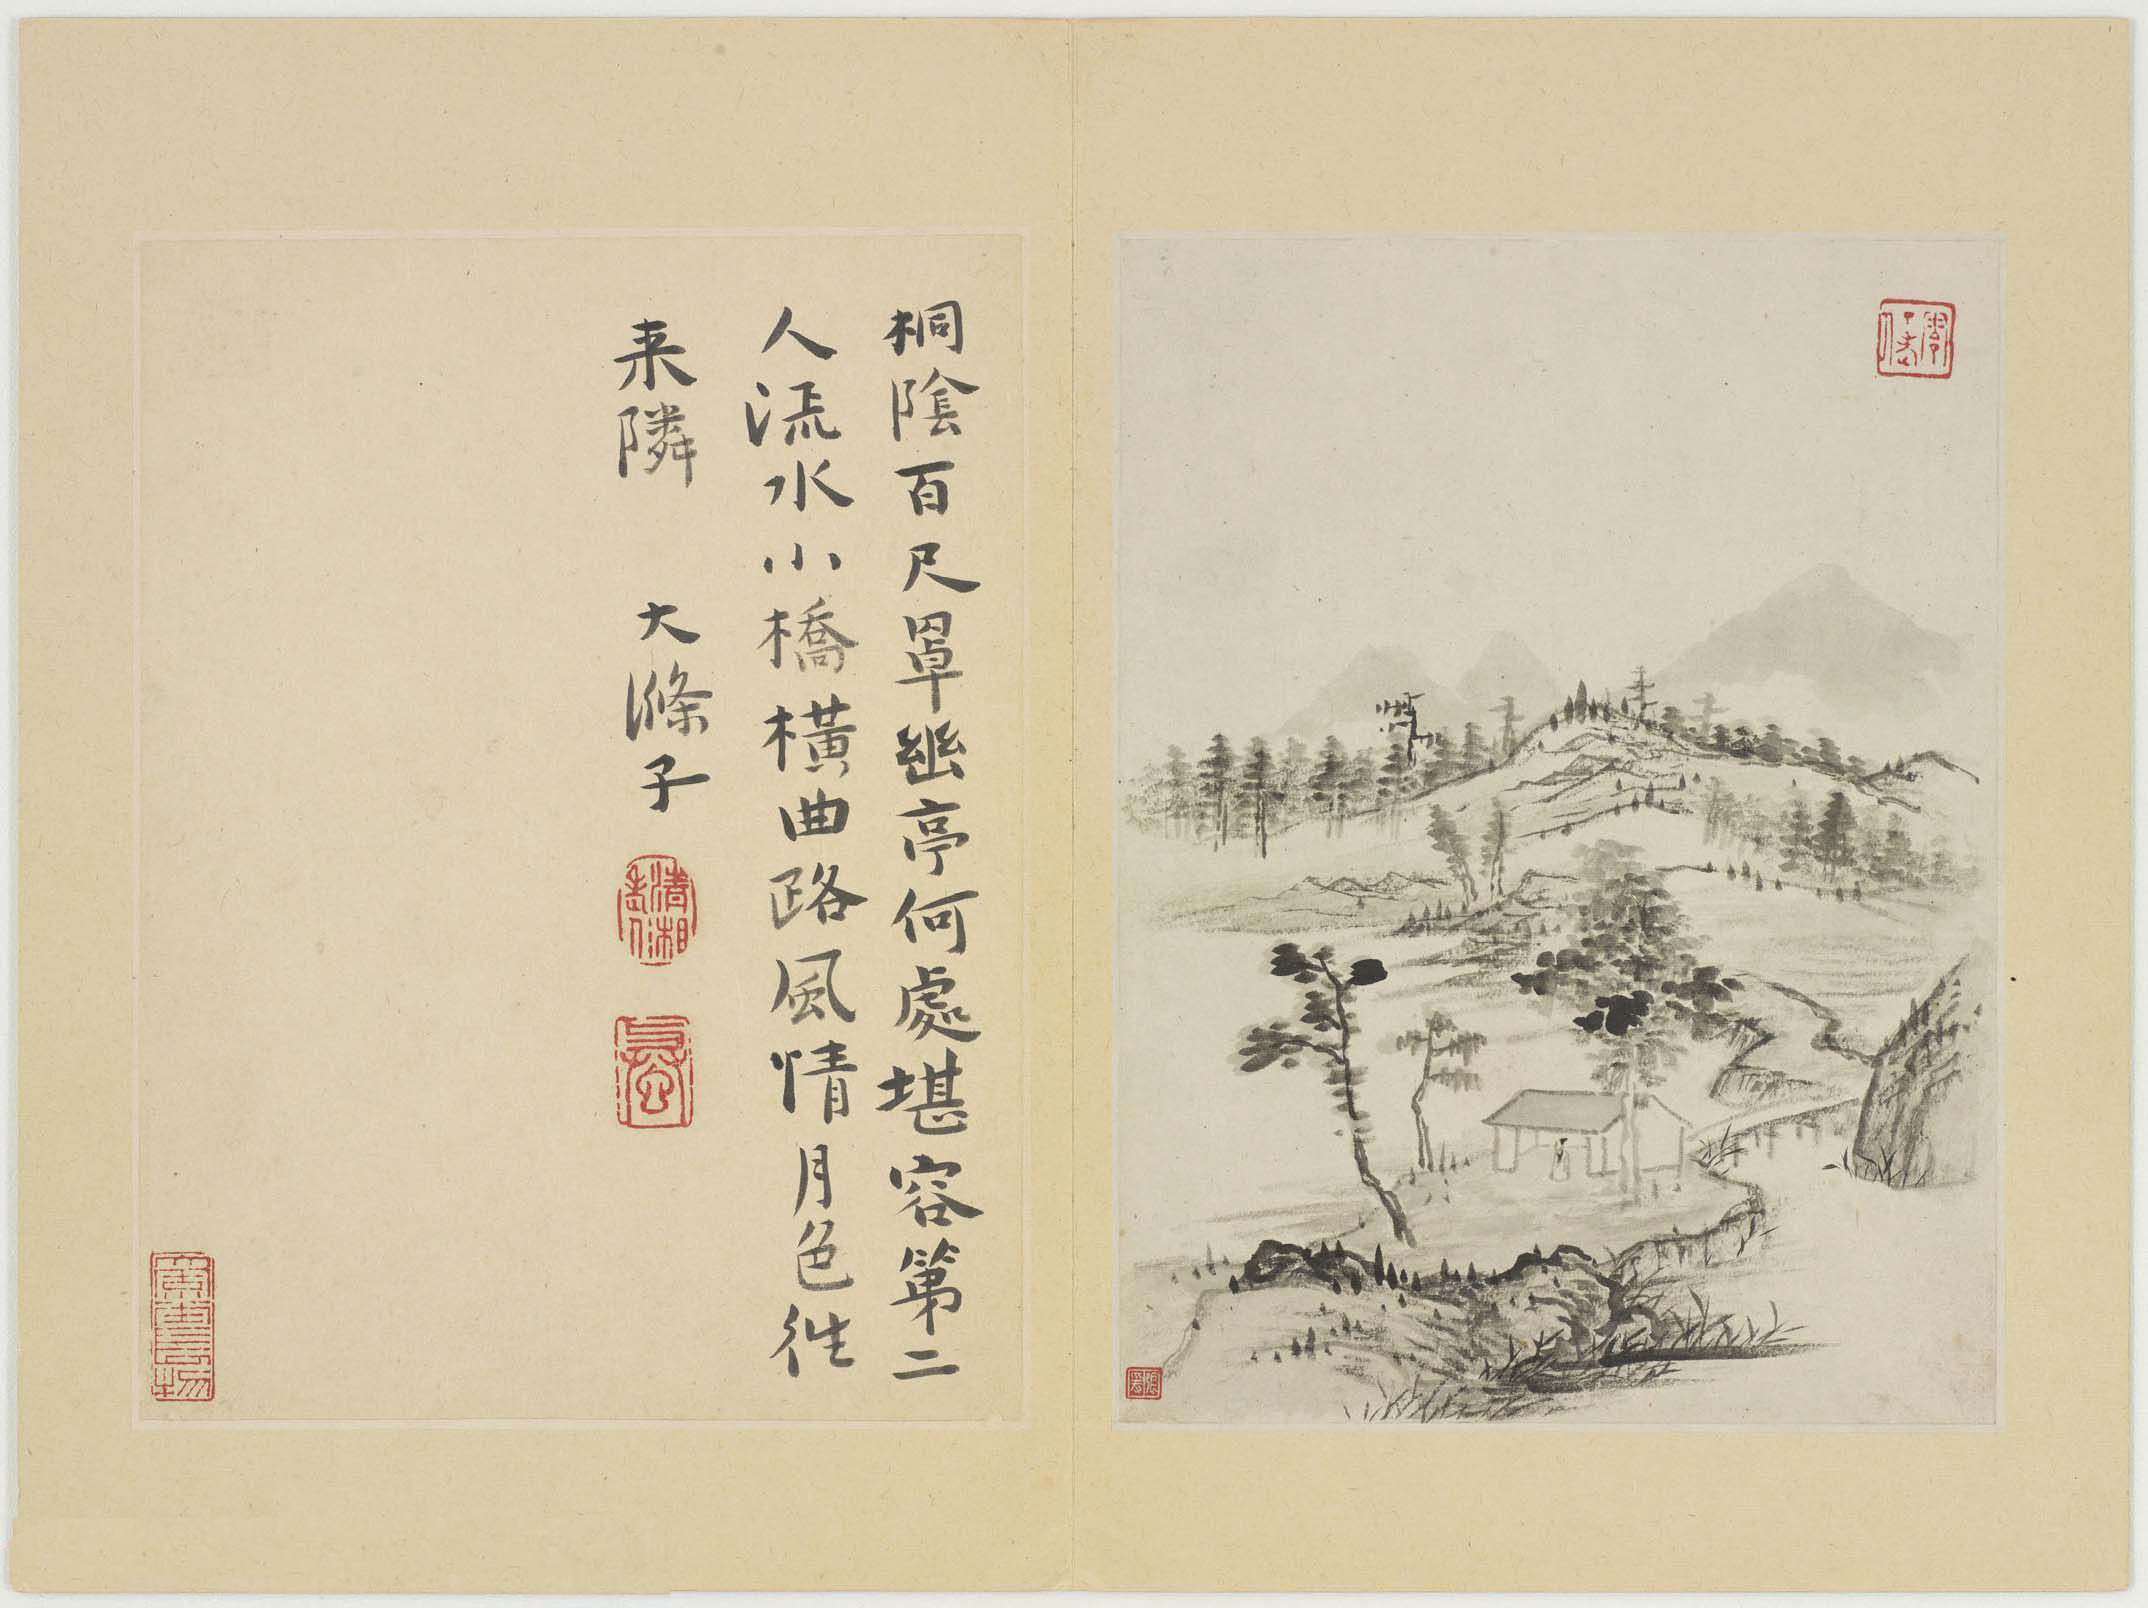 桐陰百尺罩幽亭何處堪容第二
人流水小橋橫曲路風情月色往
来隣
大滌子
清湘